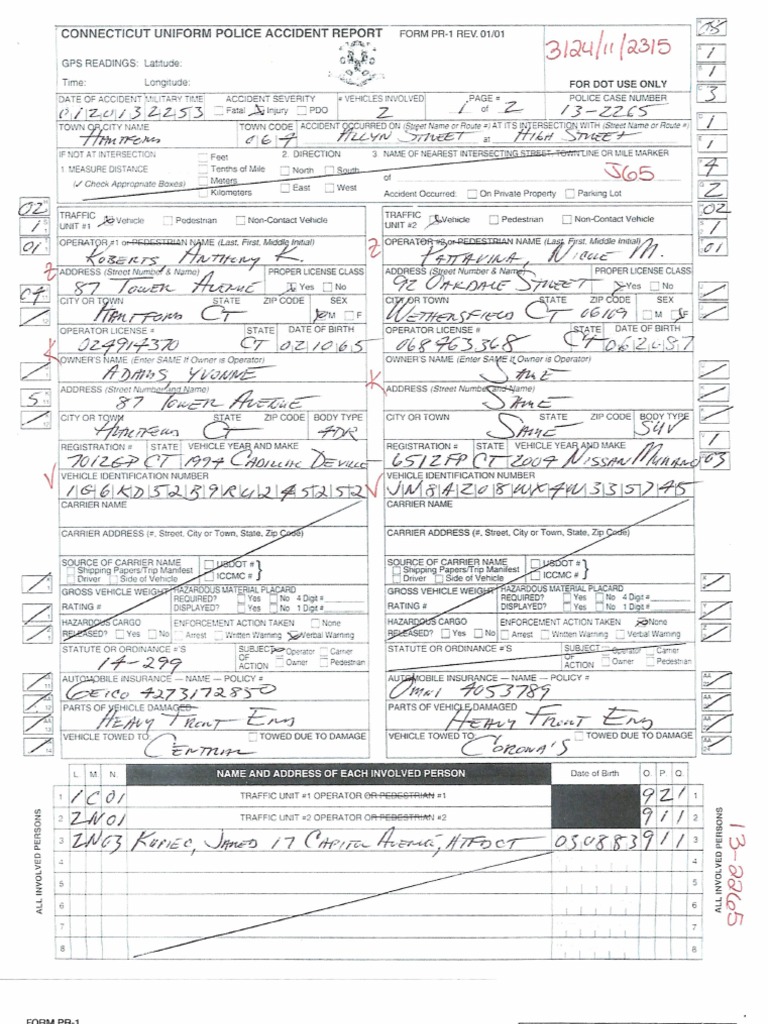 CONNECTICUT UNIFORM POLICE ACCIDENT REPORT FORM PR-1 REV. 01/01
3124/11/2315
GPS READINGS: Latitude:
Time: Longitude:
FOR DOT USE ONLY
DATE OF ACCIDENT MILITARY TIME ACCIDENT SEVERITY # VEHICLES INVOLVED PAGE # POLICE CASE NUMBER
012013 2253 Fatal Injury PDO 2 1 of 2 13-2265
TOWN OR CITY NAME TOWN CODE ACCIDENT OCCURRED ON (Street Name or Route #) AT ITS INTERSECTION WITH (Street Name or Route #)
HARTFORD 064 ALLYN STREET at HIGH STREET
IF NOT AT INTERSECTION Feet 2. DIRECTION 3 NAME OF NEAREST INTERSECTING STREET, TOWN LINE OR MILE MARKER
1 MEASURE DISTANCE Tenths of Mile North South of J65
(✓ Check Appropriate Boxes) Meters Kilometers East West Accident Occurred: On Private Property Parking Lot
TRAFFIC UNIT #1 Vehicle Pedestrian Non-Contact Vehicle
OPERATOR #1 or PEDESTRIAN NAME (Last, First, Middle Initial)
ROBERTS, ANTHONY K.
ADDRESS (Street Number & Name) PROPER LICENSE CLASS
87 TOWER AVENUE Yes No
CITY OR TOWN STATE ZIP CODE SEX
HARTFORD CT M F
OPERATOR LICENSE # STATE DATE OF BIRTH
024914370 CT 021065
OWNER'S NAME (Enter SAME If Owner is Operator)
ADAMS YVONNE
ADDRESS (Street Number and Name)
87 TOWER AVENUE
CITY OR TOWN STATE ZIP CODE BODY TYPE
HARTFORD CT 4DR
REGISTRATION # STATE VEHICLE YEAR AND MAKE
701ZGP CT 1994 CADILLAC DEVILLE
VEHICLE IDENTIFICATION NUMBER
1G6KD52B9RU245252
CARRIER NAME
CARRIER ADDRESS (#, Street, City or Town, State, Zip Code)
SOURCE OF CARRIER NAME USDOT #
Shipping Papers/Trip Manifest ICCMC #
Driver Side of Vehicle
GROSS VEHICLE WEIGHT HAZARDOUS MATERIAL PLACARD
REQUIRED? Yes No 4 Digit #
RATING # DISPLAYED? Yes No 1 Digit #
HAZARDOUS CARGO ENFORCEMENT ACTION TAKEN None
RELEASED? Yes No Arrest Written Warning Verbal Warning
STATUTE OR ORDINANCE #'S SUBJECT OF ACTION Operator Carrier Owner Pedestrian
14-299
AUTOMOBILE INSURANCE — NAME — POLICY #
GEICO 4273172850
PARTS OF VEHICLE DAMAGED
HEAVY FRONT END
VEHICLE TOWED TO: TOWED DUE TO DAMAGE
CENTRAL
TRAFFIC UNIT #2 Vehicle Pedestrian Non-Contact Vehicle
OPERATOR #2 or PEDESTRIAN NAME (Last, First, Middle Initial)
PATTAVINA, NICOLE M.
ADDRESS (Street Number & Name) PROPER LICENSE CLASS
92 OAKDALE STREET Yes No
CITY OR TOWN STATE ZIP CODE SEX
WETHERSFIELD CT 06109 M F
OPERATOR LICENSE # STATE DATE OF BIRTH
068463368 CT 062687
OWNER'S NAME (Enter SAME If Owner is Operator)
SAME
ADDRESS (Street Number and Name)
SAME
CITY OR TOWN STATE ZIP CODE BODY TYPE
SAME SUV
REGISTRATION # STATE VEHICLE YEAR AND MAKE
651ZFP CT 2004 NISSAN MURANO
VEHICLE IDENTIFICATION NUMBER
JN8AZ08WX4W335745
CARRIER NAME
CARRIER ADDRESS (#, Street, City or Town, State, Zip Code)
SOURCE OF CARRIER NAME USDOT #
Shipping Papers/Trip Manifest ICCMC #
Driver Side of Vehicle
GROSS VEHICLE WEIGHT HAZARDOUS MATERIAL PLACARD
REQUIRED? Yes No 4 Digit #
RATING # DISPLAYED? Yes No 1 Digit #
HAZARDOUS CARGO ENFORCEMENT ACTION TAKEN None
RELEASED? Yes No Arrest Written Warning Verbal Warning
STATUTE OR ORDINANCE #'S SUBJECT OF ACTION Operator Carrier Owner Pedestrian
AUTOMOBILE INSURANCE — NAME — POLICY #
OMNI 4053789
PARTS OF VEHICLE DAMAGED
HEAVY FRONT END
VEHICLE TOWED TO: TOWED DUE TO DAMAGE
CORONA'S
L. M. N. NAME AND ADDRESS OF EACH INVOLVED PERSON Date of Birth O. P. Q.
1 1C01 TRAFFIC UNIT #1 OPERATOR OR PEDESTRIAN #1 921 1
2 2N01 TRAFFIC UNIT #2 OPERATOR OR PEDESTRIAN #2 911 2
3 2N03 KUPIEC, JARED 17 CAPITOL AVENUE, HTFD CT 030883 911 3
4 4
5 5
6 6
7 7
8 8
ALL INVOLVED PERSONS
ALL INVOLVED PERSONS
13-2265
FORM PR-1